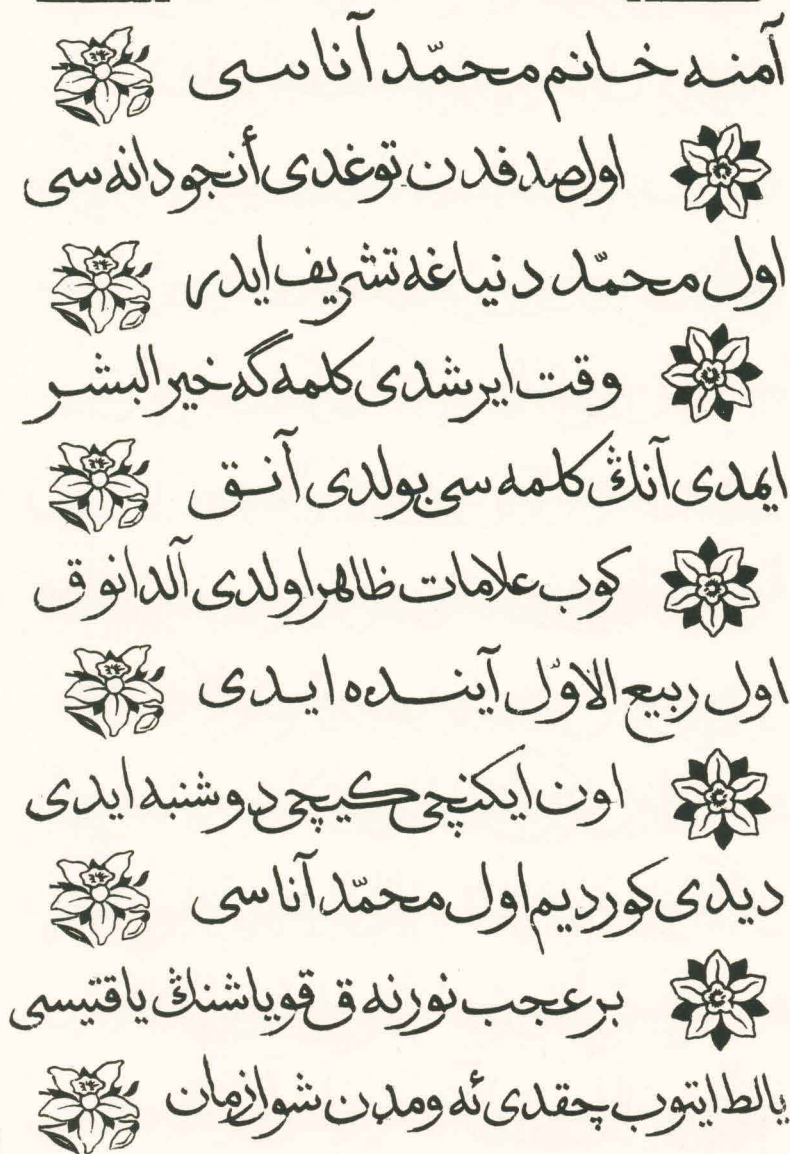 آمنه خانم محمّد آناسی
اول صدفدن توغدی أنجو دانه سی
اول محمّد دنیاغه تشریف ایدر
وقت ایرشدی کلمه گه خیر البشر
ایمدی آنڭ کلمه سی بولدی آنق
کوب علامات ظاهر اولدی آلدانوق
اول ربیع الاوّل آینده ایدی
اون ایکنچی کیچی دوشنبه ایدی
دیدی کوردیم اول محمّد آناسی
بر عجب نور نه ق قویاشنڭ یاقتیسی
یالط ایتوب چقدی ئه ومدن شول زمان